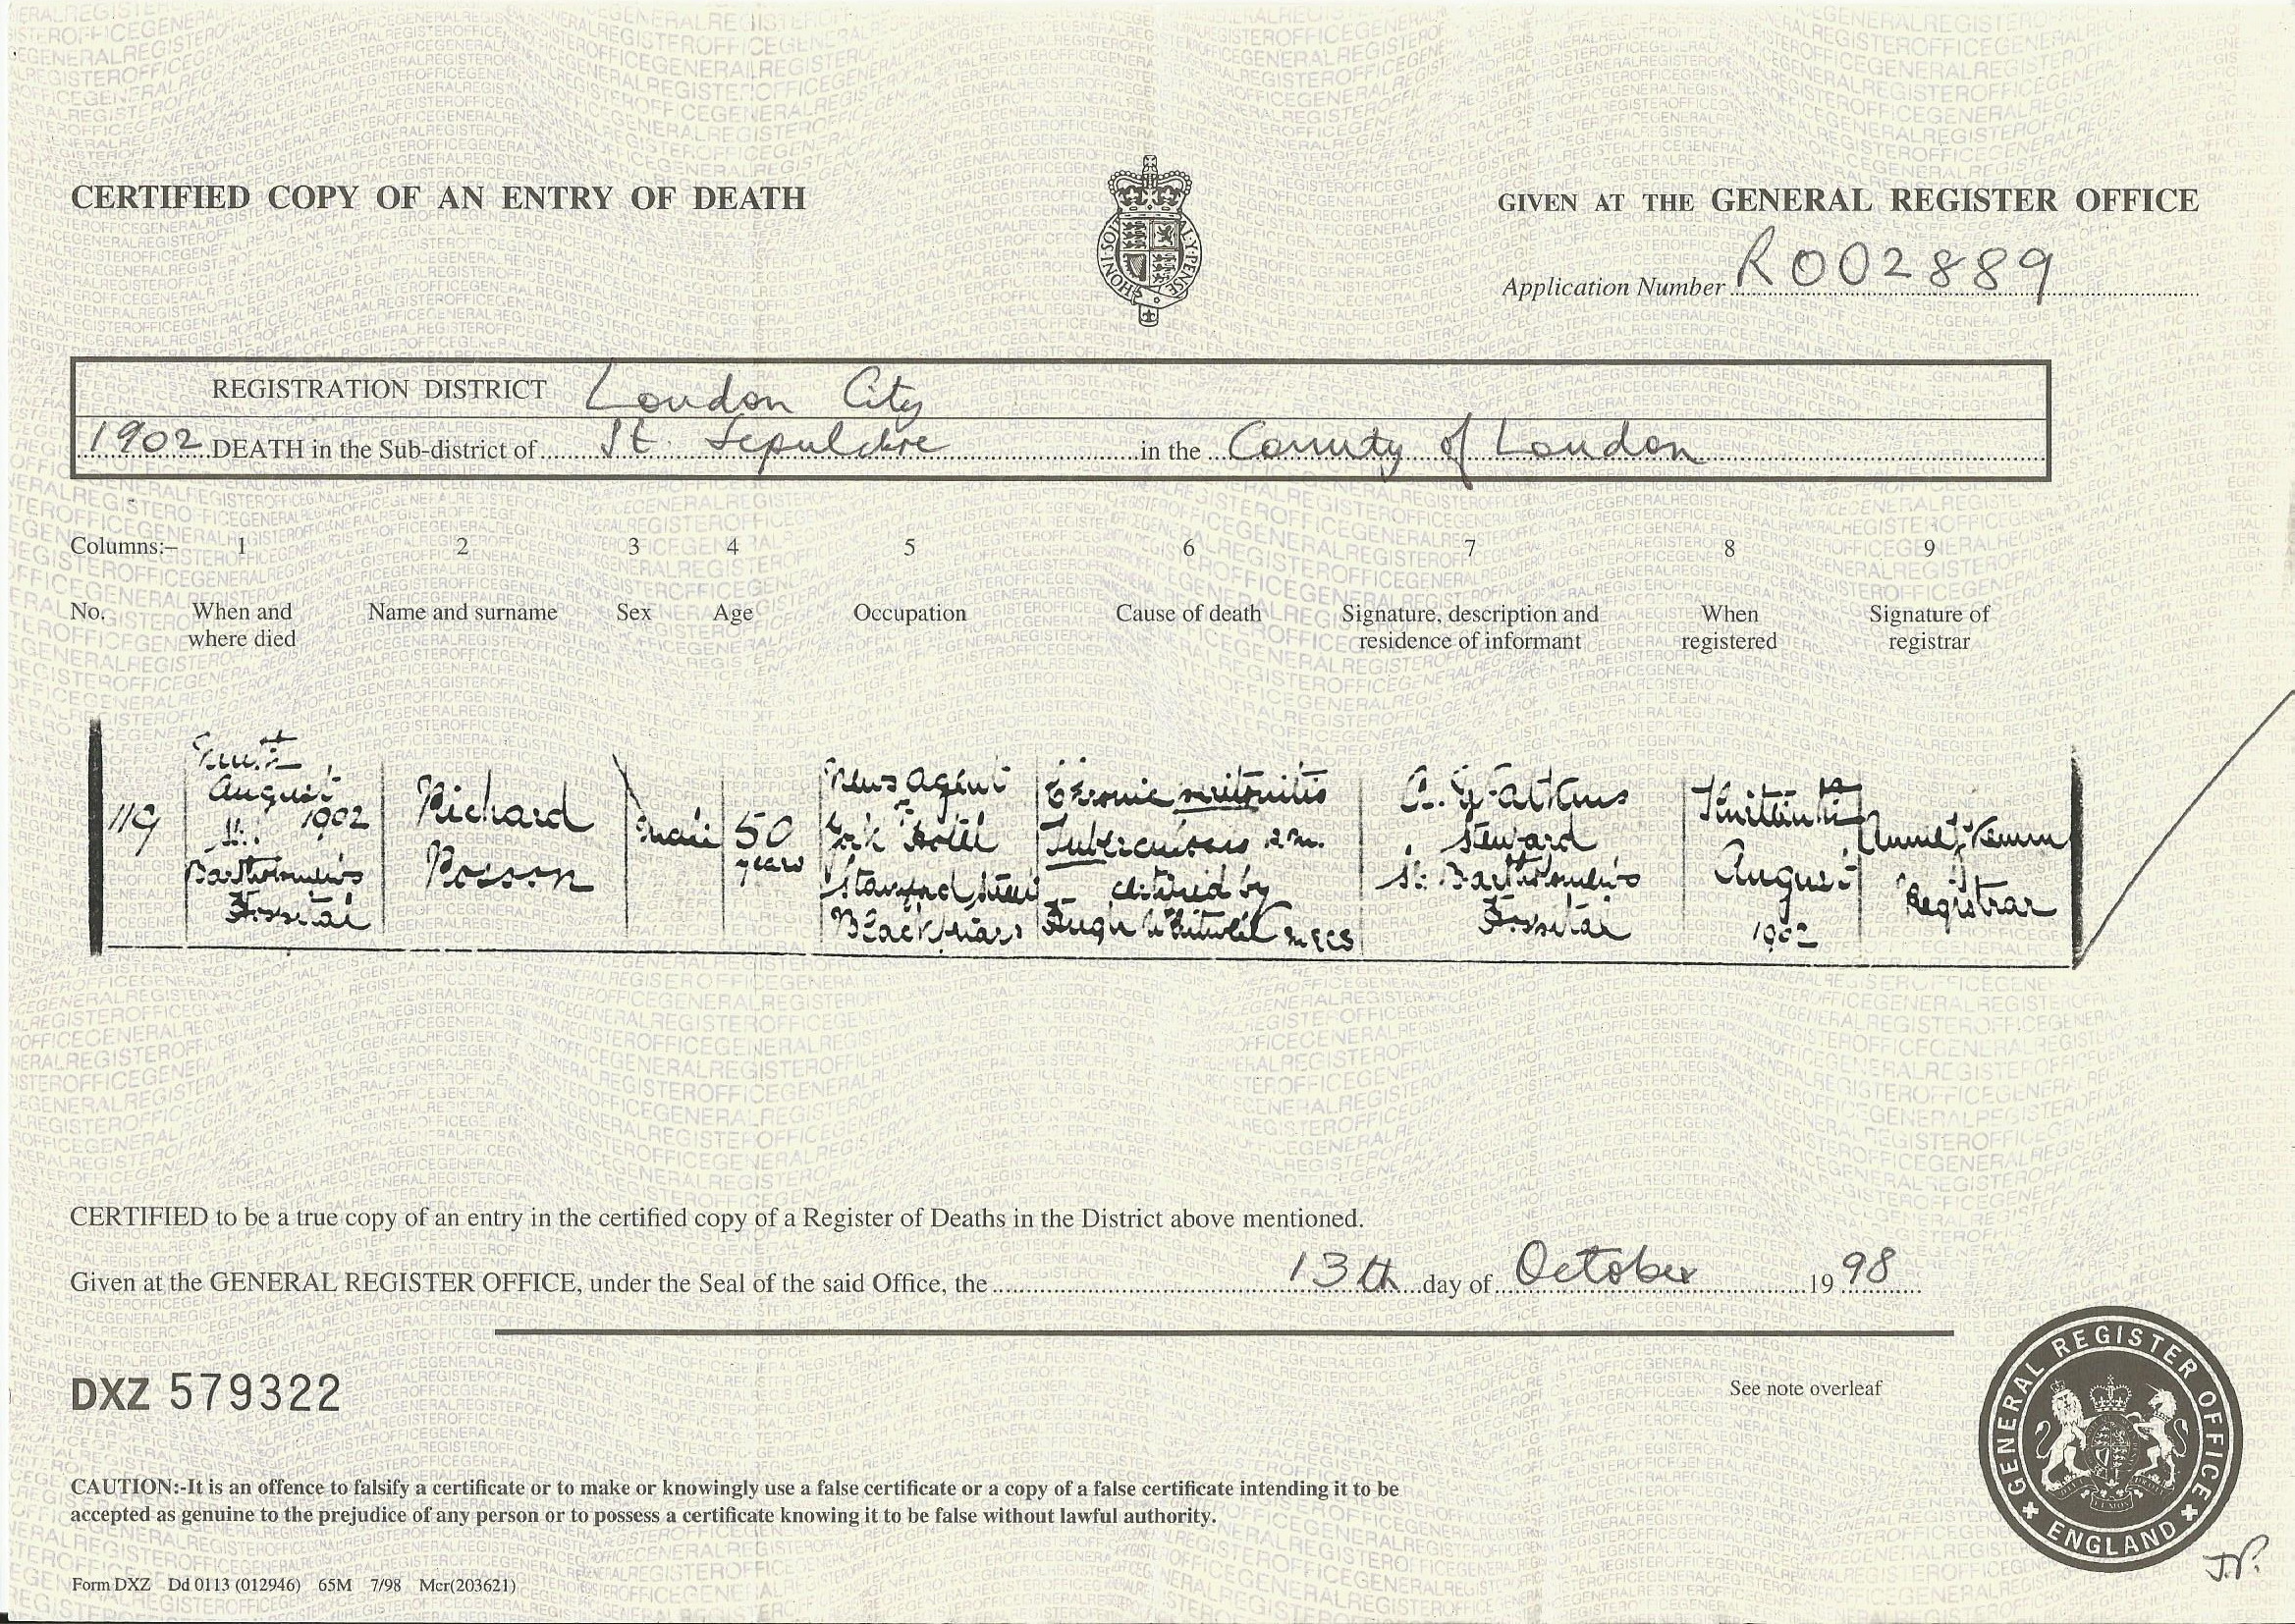 CERTIFIED COPY OF AN ENTRY OF DEATH
GIVEN AT THE GENERAL REGISTER OFFICE
Application Number R002889
HONI·SOIT·Y·PENSE
REGISTRATION DISTRICT London City
1902 DEATH in the Sub-district of St. Sepulchre in the County of London
Columns:– 1 2 3 4 5 6 7 8 9
No.
When and
where died
Name and surname
Sex
Age
Occupation
Cause of death
Signature, description and
residence of informant
When
registered
Signature of
registrar
119
August
1902
St.
Bartholomew's
Hospital
Richard
Posson
Male
50
years
News Agent
York Hotel
Stamford Street
Blackfriars
Chronic peritonitis
Tuberculosis P.M.
Certified by
Hugh Whitwell MRCS
Watkins
Steward
St. Bartholomew's
Hospital
August
1902
Registrar
CERTIFIED to be a true copy of an entry in the certified copy of a Register of Deaths in the District above mentioned.
Given at the GENERAL REGISTER OFFICE, under the Seal of the said Office, the 13th day of October 1998
DXZ 579322
See note overleaf
GENERAL REGISTER OFFICE
ENGLAND
CAUTION:-It is an offence to falsify a certificate or to make or knowingly use a false certificate or a copy of a false certificate intending it to be
accepted as genuine to the prejudice of any person or to possess a certificate knowing it to be false without lawful authority.
J.P.
Form DXZ Dd 0113 (012946) 65M 7/98 Mcr(203621)